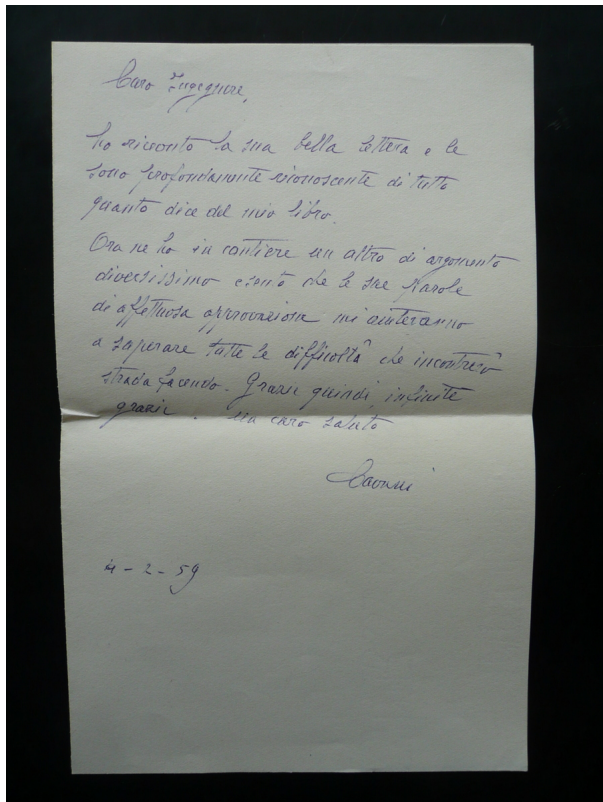 Caro Ingegnere,
ho ricevuto la sua bella lettera e le
sono profondamente riconoscente di tutto
quanto dice del mio libro.
Ora ne ho in cantiere un altro di argomento
diversissimo e sento che le sue parole
di affettuosa approvazione mi aiuteranno
a superare tutte le difficoltà che incontrerò
strada facendo. Grazie quindi, infinite
grazie. Un caro saluto
4-2-59